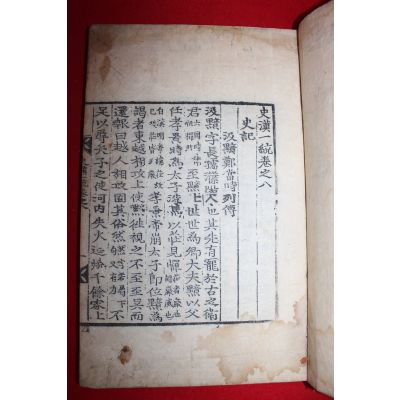 史漢一統卷之八
史記
汲黯鄭當時列傳
汲黯字長孺濮陽人也其先有寵於古之衛
君至黯七世世爲卿大夫黯以父
任孝景時爲太子洗馬以莊見憚
孝景帝崩太子卽位黯爲
謁者東越相攻上使黯徃視之不至至吳而
還報曰越人相攻固其俗然不
足以辱天子之使河内失火延燒千餘家上